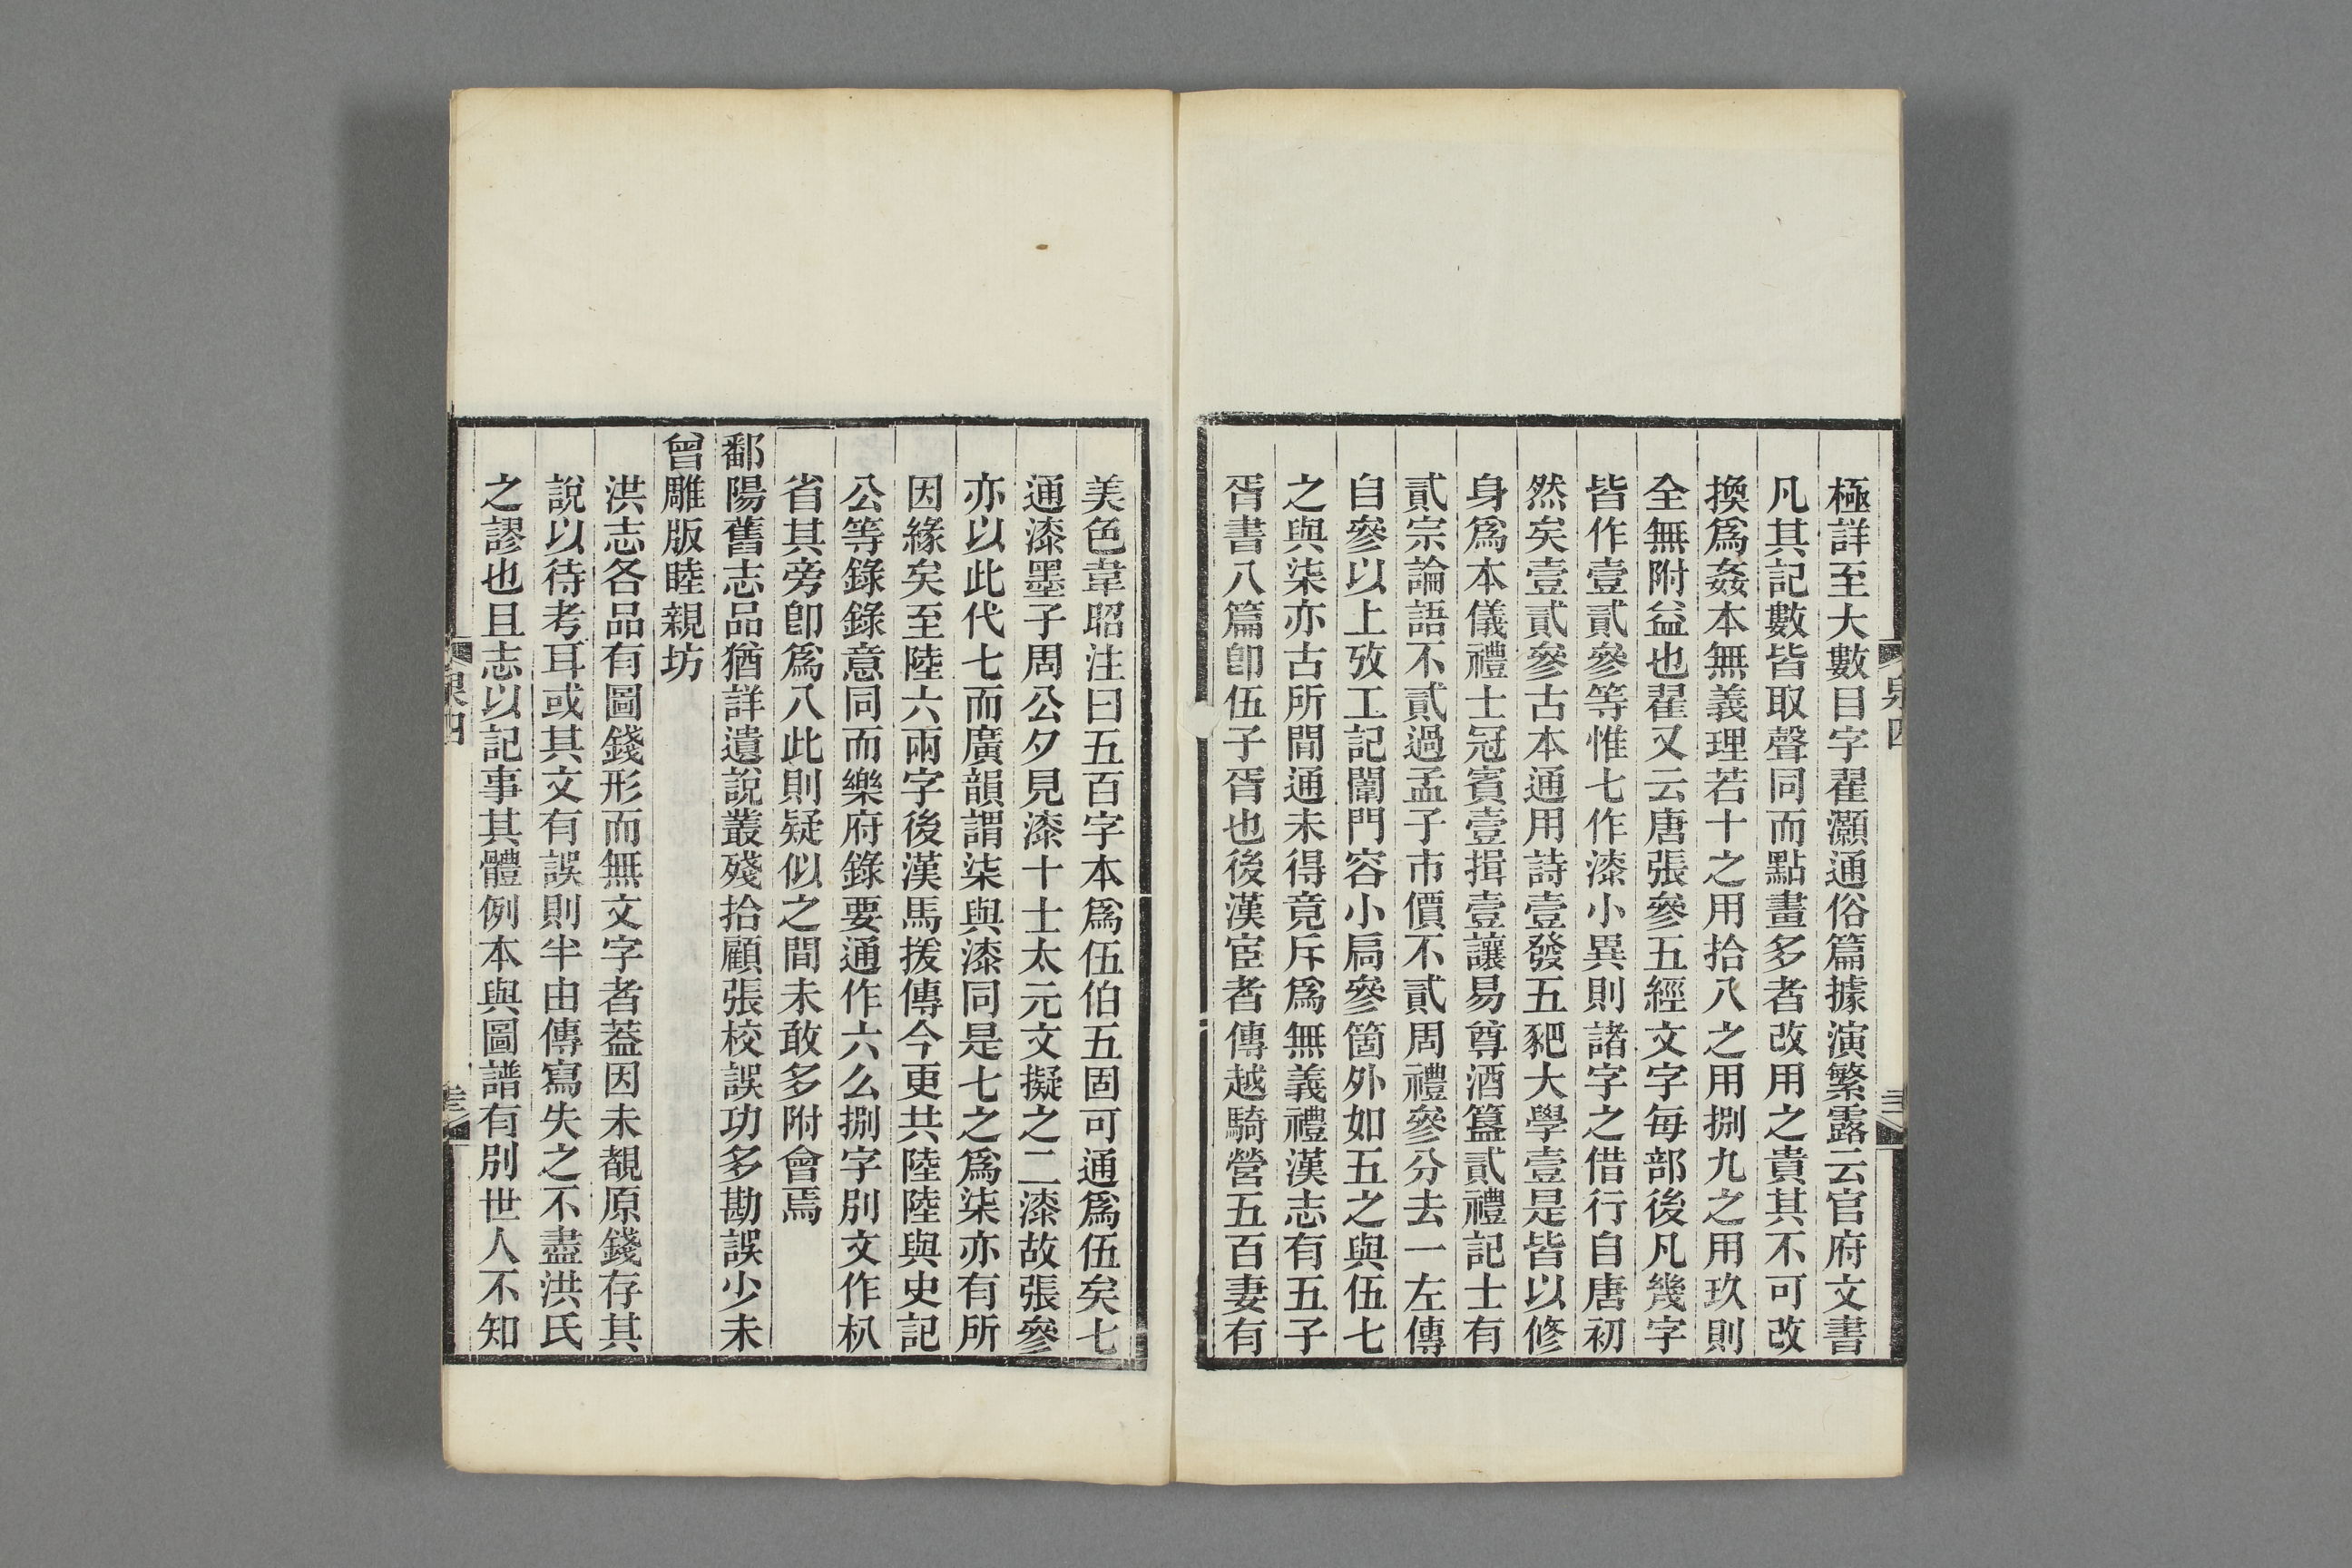 極詳至大數目字翟灝通俗篇據演繁露云官府文書
凡其記數皆取聲同而點畫多者改用之貴其不可改
換爲姦本無義理若十之用拾八之用捌九之用玖則
全無附益也翟又云唐張參五經文字每部後凡幾字
皆作壹貳參等惟七作漆小異則諸字之借行自唐初
然矣壹貳參古本通用詩壹發五豝大學壹是皆以修
身爲本儀禮士冠賓壹揖壹讓易尊酒簋貳禮記士有
貳宗論語不貳過孟子市價不貳周禮參分去一左傳
自參以上攷工記闈門容小扃參箇外如五之與伍七
之與柒亦古所閒通未得竟斥爲無義禮漢志有五子
胥書八篇卽伍子胥也後漢宦者傳越騎營五百妻有
美色韋昭注曰五百字本爲伍伯五固可通爲伍矣七
通漆墨子周公夕見漆十士太元文擬之二漆故張參
亦以此代七而廣韻謂柒與漆同是七之爲柒亦有所
因緣矣至陸六兩字後漢馬援傳今更共陸陸與史記
公等錄錄意同而樂府錄要通作六么捌字別文作朳
省其旁卽爲八此則疑似之間未敢多附會焉
鄱陽舊志品猶詳遺說叢殘拾顧張校誤功多勘誤少未
曾雕版睦親坊
洪志各品有圖錢形而無文字者蓋因未覩原錢存其
說以待考耳或其文有誤則半由傳寫失之不盡洪氏
之謬也且志以記事其體例本與圖譜有別世人不知